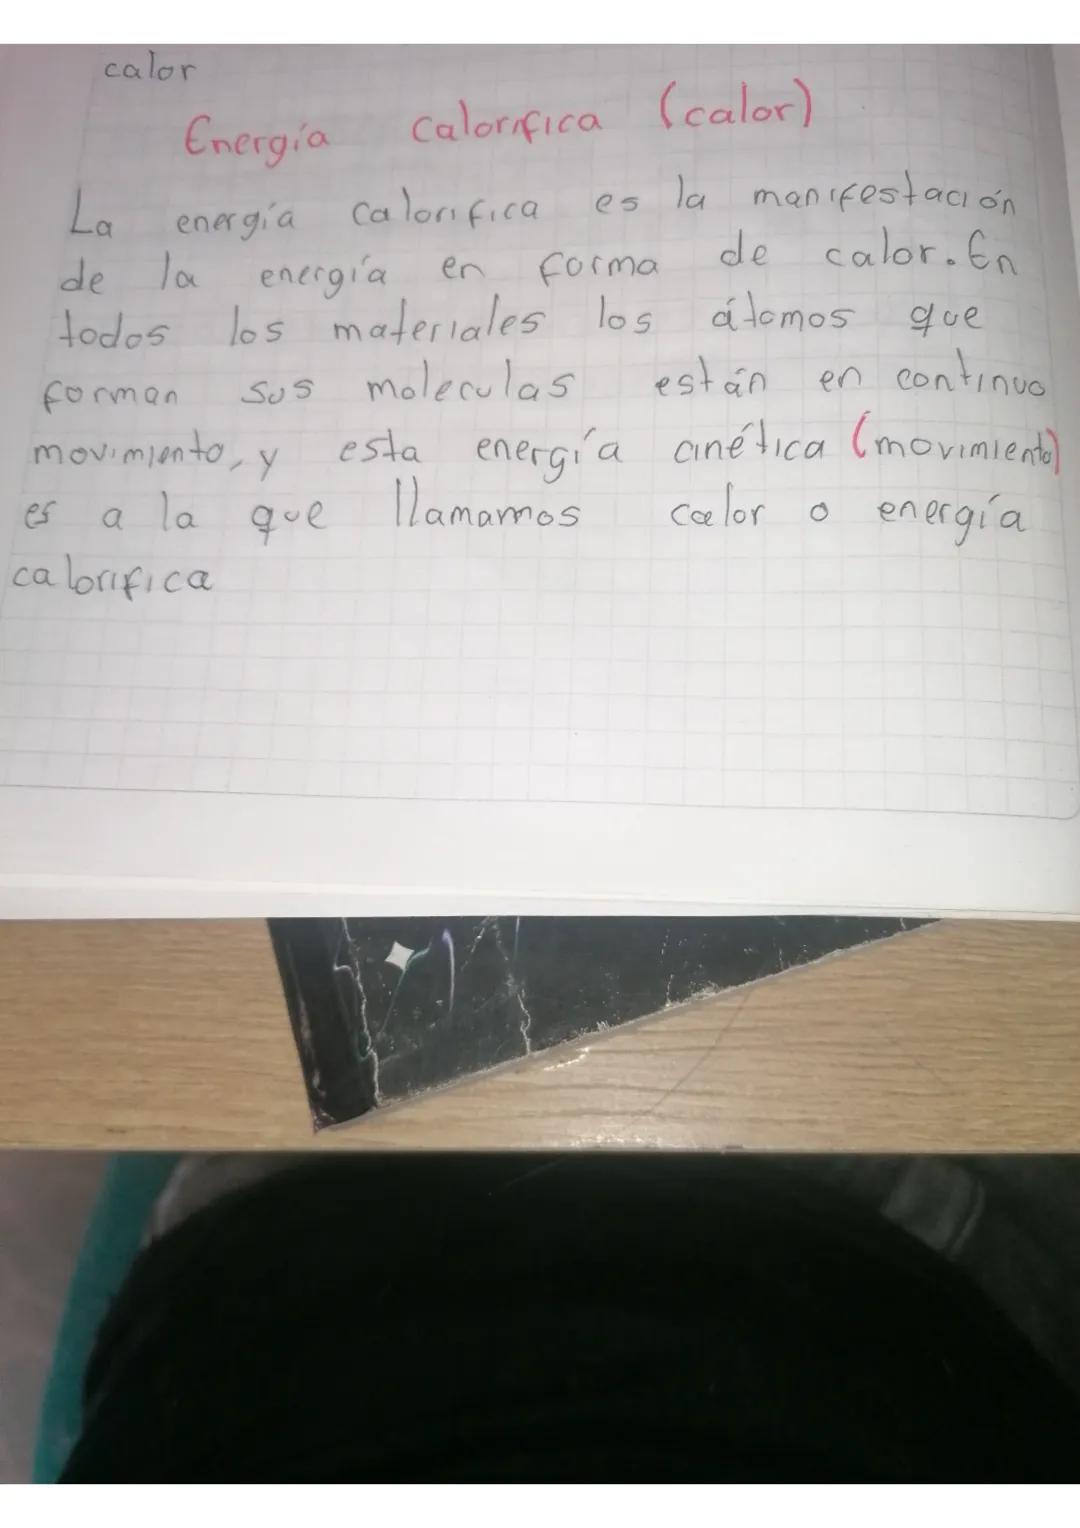 calor
Energía calorifica (calor)
La energía calorifica es la manifestación
de la energía en forma de calor. En
todos los materiales los átomos que
forman sus moleculas están en continuo
movimiento, y esta energía cinética (movimiento)
es a la que llamamos calor o energía
calorifica